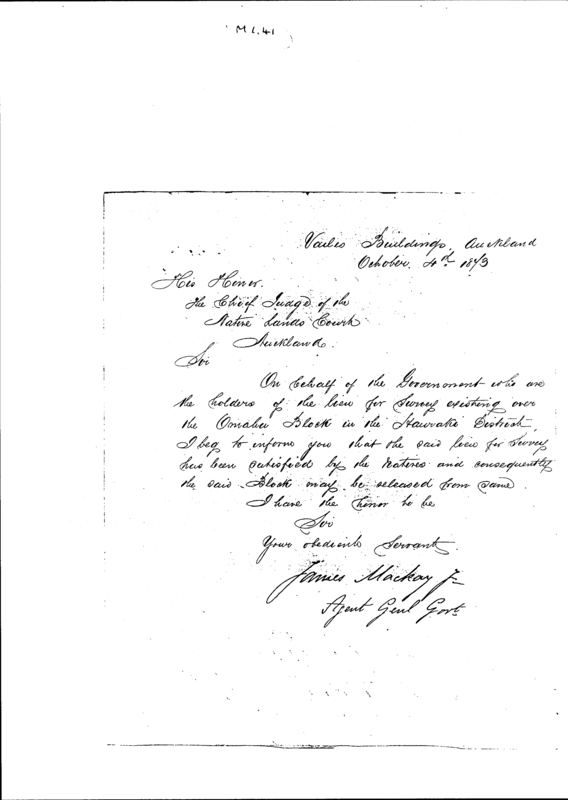 M 2.41
Vailes Buildings, Auckland
October 4th 1873
His Honor.
the Chief Judge of the
Native Lands Court
Auckland.
Sir
On behalf of the Government who are
the holders of the lien for survey existing over
the Omahu Block in the Hauraki District,
I beg to inform you that the said lien for survey
has been satisfied by the Natives and consequently
the said Block may be released from same.
I have the honor to be
Sir
Your obedient Servant.
James Mackay Jr
Agent Genl Govt